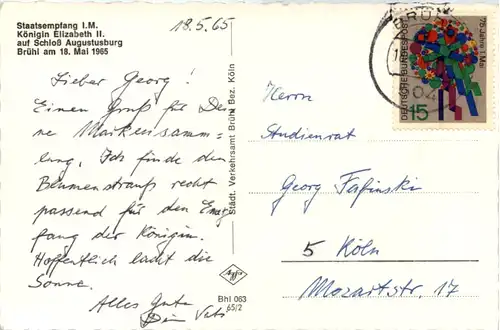 Staatsempfang I.M.
Königin Elizabeth II.
auf Schloß Augustusburg
Brühl am 18. Mai 1965
18.5.65
Lieber Georg!
Einen Gruß für Dei-
ne Markensamm-
lung. Ich finde den
Blumenstrauß recht
passend für den Emp-
fang der Königin
Hoffentlich lacht die
Sonne.
Alles Gute
Dein Vati
Städt. Verkehrsamt Brühl Bez. Köln
Agfa
Bhl 063
65/2
BRÜ
75 Jahre 1. Mai
DEUTSCHE BUNDESPOST
15
Herrn
Studienrat
Georg Fafinski
5 Köln
Mozartstr. 17